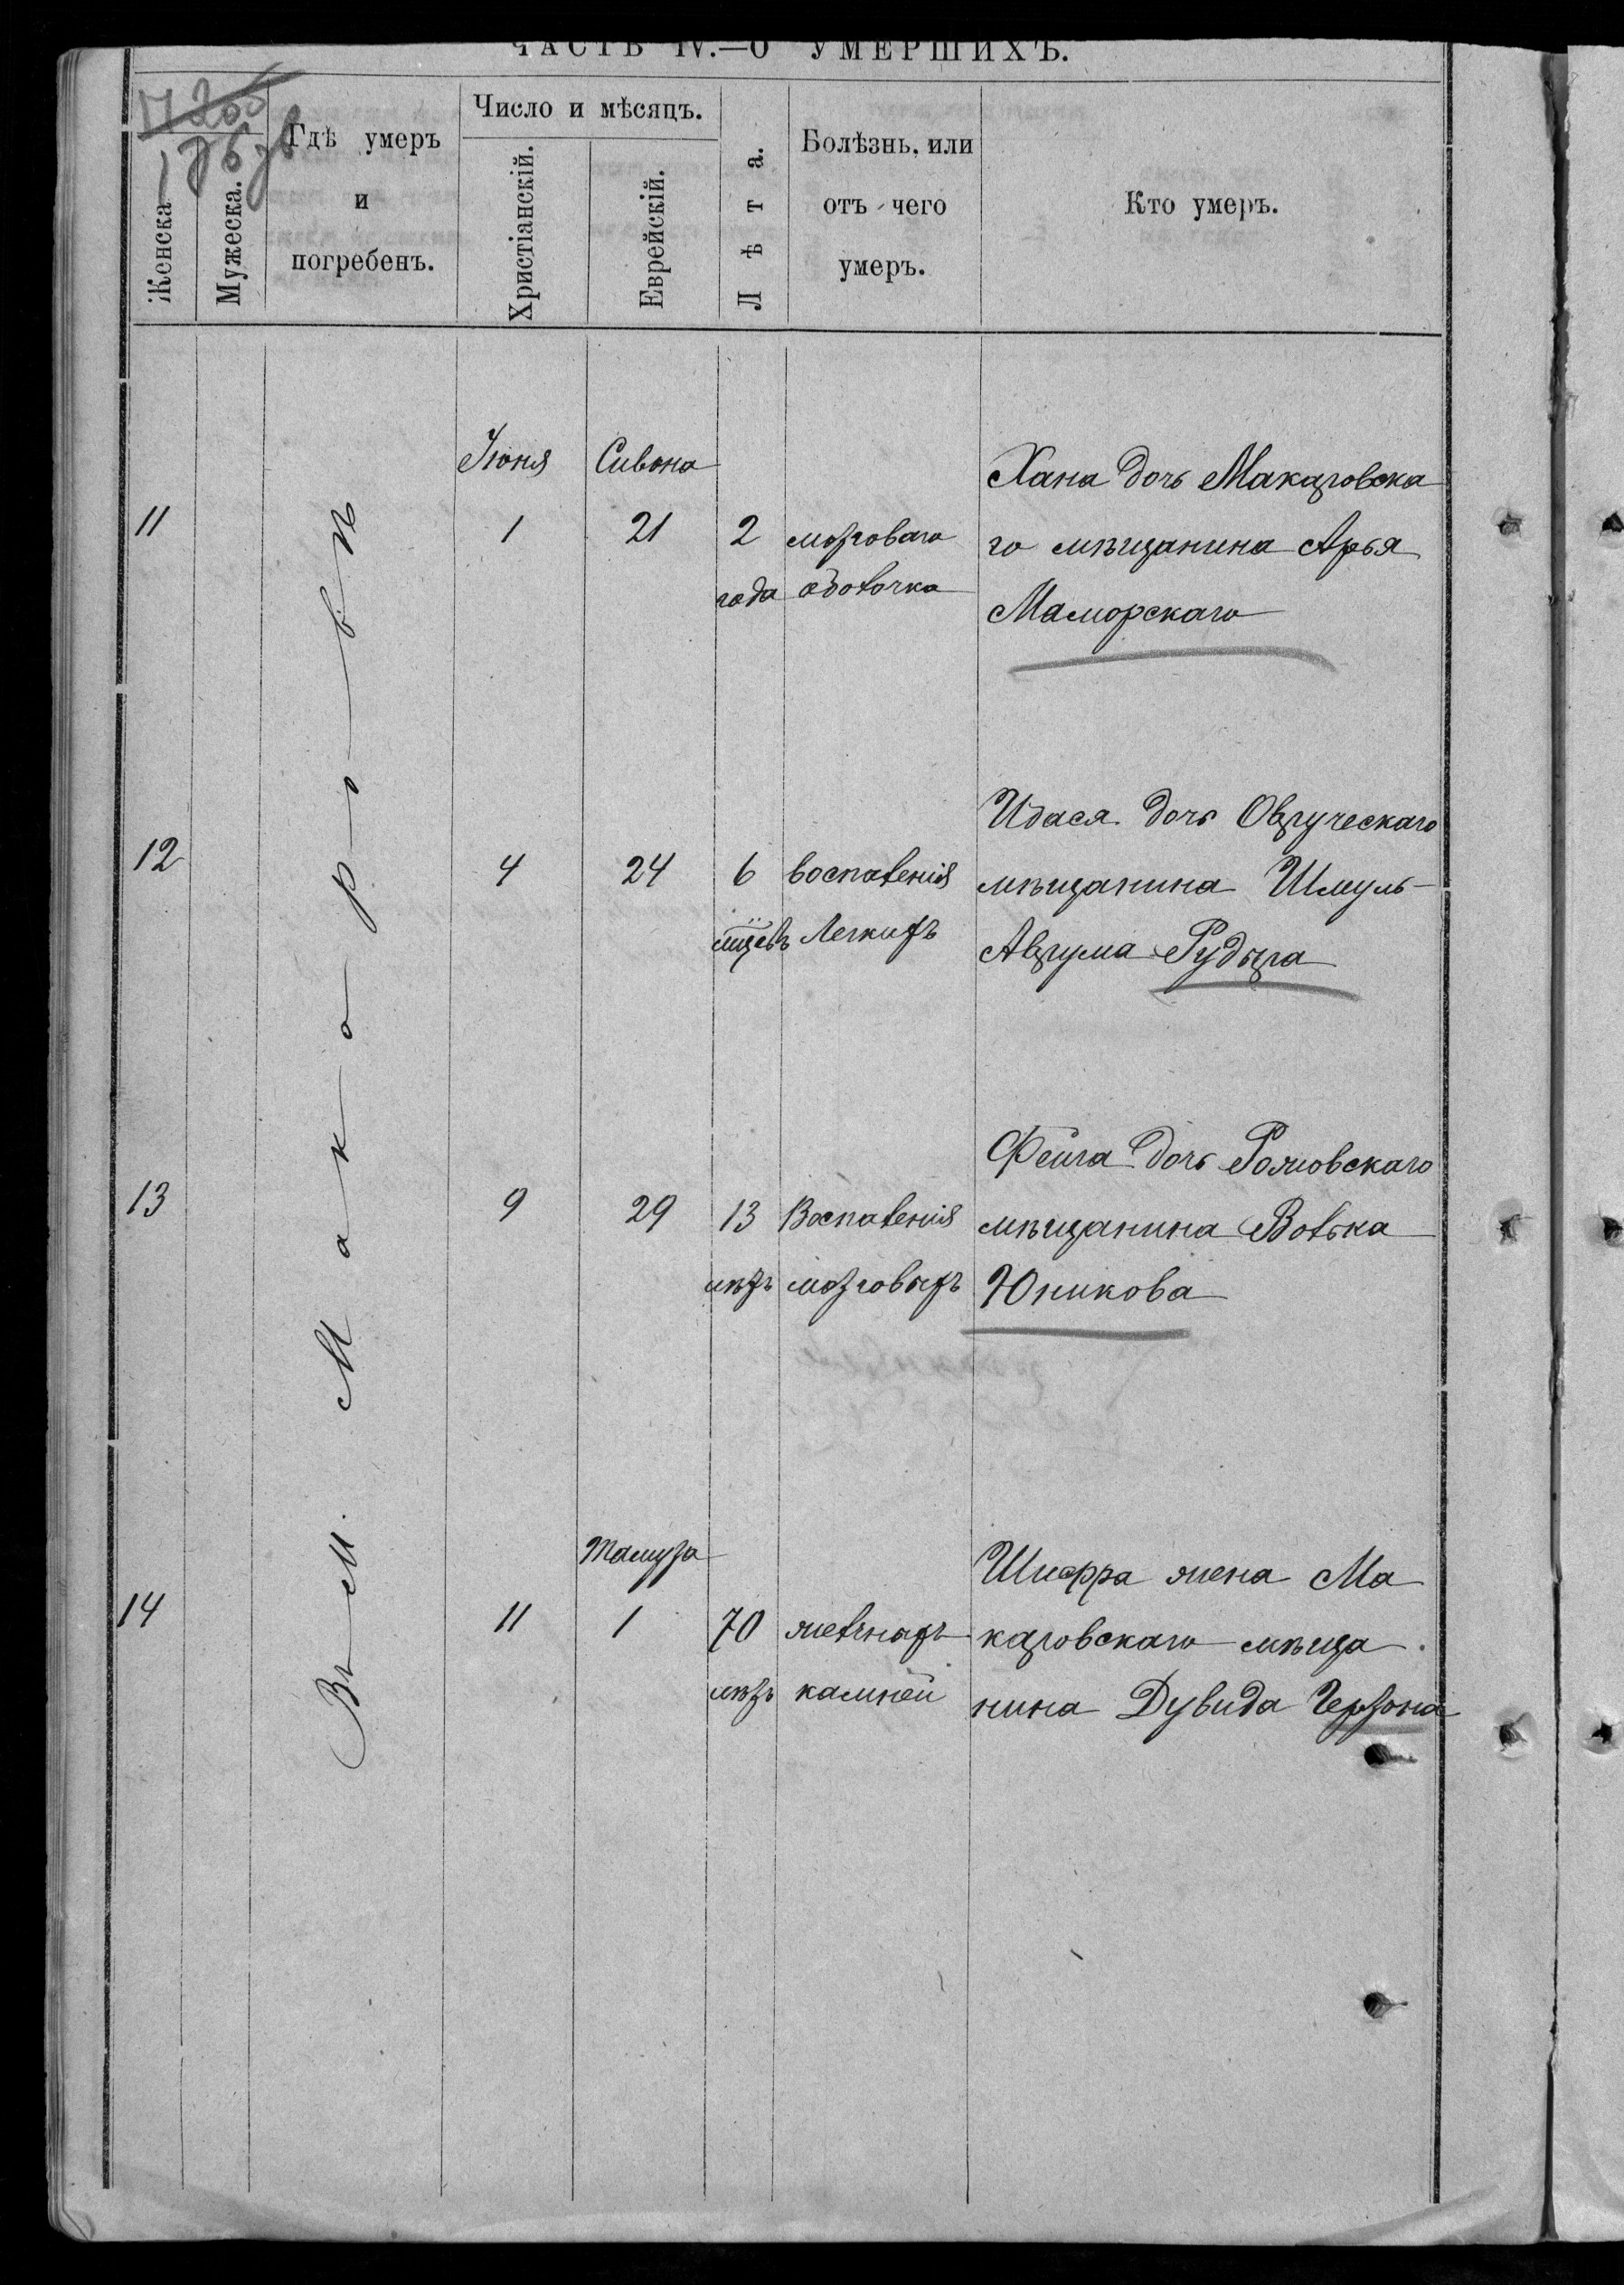 ЧАСТЬ IV.—О УМЕРШИХЪ.
Женска
Мужеска.
Гдѣ умеръ
и
погребенъ.
Число и мѣсяцъ.
Христіанскій.
Еврейскій.
Лѣта.
Болѣзнь, или
отъ чего
умеръ.
Кто умеръ.
Въ М. Макаровѣ
Іюня Сивона
11 1 21 2 мозговаго
года оболочка
Хана дочь Макаровска
го мѣщанина Арья
Маморскаго
12 4 24 6 воспаленія
мѣсяцевъ Легкихъ
Идася дочь Овручскаго
мѣщанина Шмуль-
Аврума Рудыра
13 9 29 13 Воспаленія
лѣтъ мозговыхъ
Фейга дочь Рожовскаго
мѣщанина Волька
Юникова
Тамуза
14 11 1 70 желчныхъ
лѣтъ камней
Шифра жена Ма
каровскаго мѣща
нина Дувида Герзона